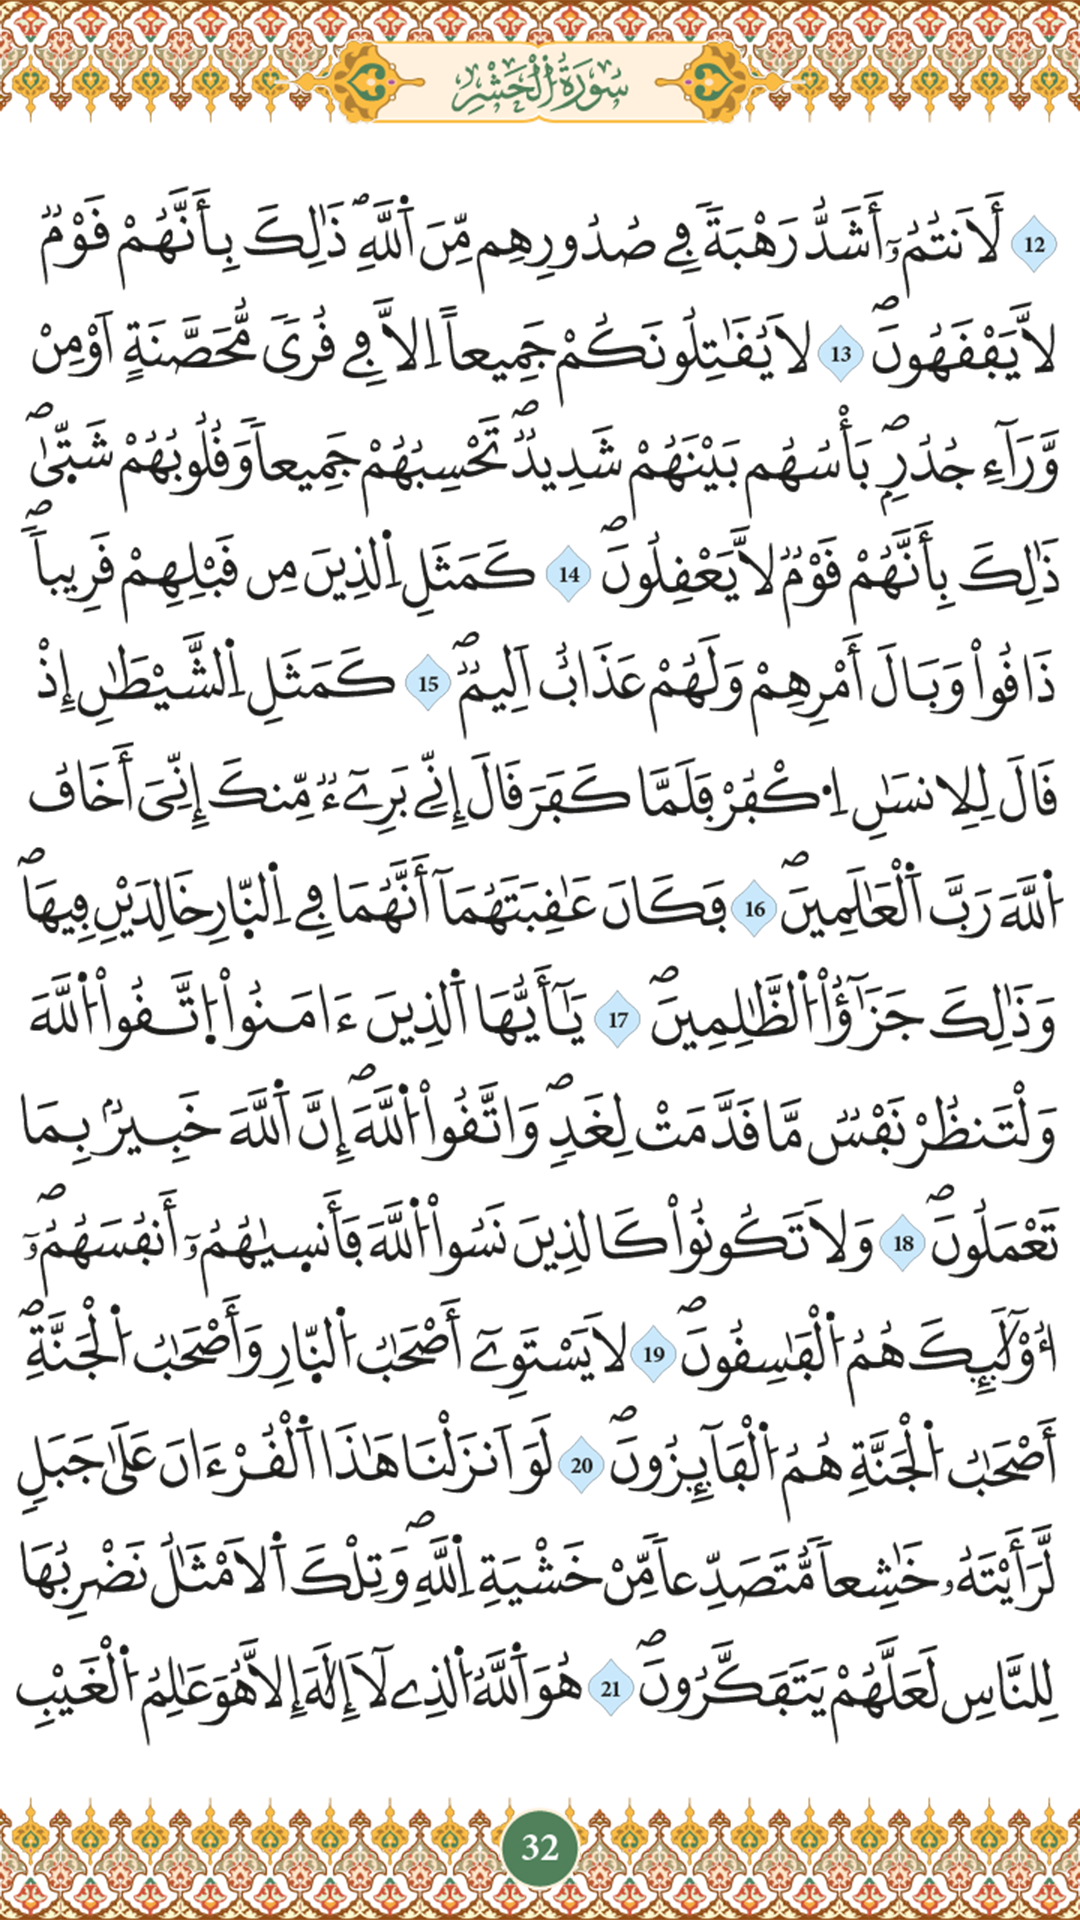 سُورَةُ الْحَشْرِ
12 لَأَنتُمُۥٓ أَشَدُّ رَهْبَةٗ فِے صُدُورِهِم مِّنَ اَ۬للَّهِۖ ذَٰلِكَ بِأَنَّهُمْ قَوْمٞ
لَّا يَفْقَهُونَۖ 13 لَا يُقَٰتِلُونَكُمْ جَمِيعاً اِلَّا فِے قُريٗ مُّحَصَّنَةٍ اَوْ مِنْ
وَّرَآءِ جُدُرِۢۖ بَأْسُهُم بَيْنَهُمْ شَدِيدٞۖ تَحْسِبُهُمْ جَمِيعاٗ وَقُلُوبُهُمْ شَتّ۪يٰۖ
ذَٰلِكَ بِأَنَّهُمْ قَوْمٞ لَّا يَعْقِلُونَۖ 14 كَمَثَلِ اِ۬لذِينَ مِن قَبْلِهِمْ قَرِيباٗۖ
ذَاقُواْ وَبَالَ أَمْرِهِمْ وَلَهُمْ عَذَابٌ اَلِيمٞۖ 15 كَمَثَلِ اِ۬لشَّيْطَٰنِ إِذْ
قَالَ لِلِانسَٰنِ اِ۟كْفُرْ فَلَمَّا كَفَرَ قَالَ إِنِّے بَرِےٓءٞ مِّنكَ إِنِّيَ أَخَافُ
اُ۬للَّهَ رَبَّ اَ۬لْعَٰلَمِينَۖ 16 فَكَانَ عَٰقِبَتَهُمَآ أَنَّهُمَا فِے اِ۬لنّ۪ارِ خَٰلِدَيْنِ فِيهَاۖ
وَذَٰلِكَ جَزَٰٓؤُاْ اُ۬لظَّٰلِمِينَۖ 17 يَٰٓأَيُّهَا اَ۬لذِينَ ءَامَنُواْ اُ۪تَّقُواْ اُ۬للَّهَ
وَلْتَنظُرْ نَفْسٞ مَّا قَدَّمَتْ لِغَدٖۖ وَاتَّقُواْ اُ۬للَّهَۖ إِنَّ اَ۬للَّهَ خَبِيرُۢ بِمَا
تَعْمَلُونَۖ 18 وَلَا تَكُونُواْ كَالذِينَ نَسُواْ اُ۬للَّهَ فَأَنس۪يٰهُمُۥٓ أَنفُسَهُمُۥٓۖ
أُوْلَٰٓئِكَ هُمُ اُ۬لْفَٰسِقُونَۖ 19 لَا يَسْتَوِےٓ أَصْحَٰبُ اُ۬لنّ۪ارِ وَأَصْحَٰبُ اُ۬لْجَنَّةِۖ
أَصْحَٰبُ اُ۬لْجَنَّةِ هُمُ اُ۬لْفَآئِزُونَۖ 20 لَوَ اَنزَلْنَا هَٰذَا اَ۬لْقُرْءَانَ عَلَىٰ جَبَلٖ
لَّرَأَيْتَهُۥ خَٰشِعاٗ مُّتَصَدِّعاٗ مِّنْ خَشْيَةِ اِ۬للَّهِۖ وَتِلْكَ اَ۬لَامْثَٰلُ نَضْرِبُهَا
لِلنَّاسِ لَعَلَّهُمْ يَتَفَكَّرُونَۖ 21 هُوَ اَ۬للَّهُ اُ۬لذِے لَآ إِلَٰهَ إِلَّا هُوَ عَٰلِمُ اُ۬لْغَيْبِ
32